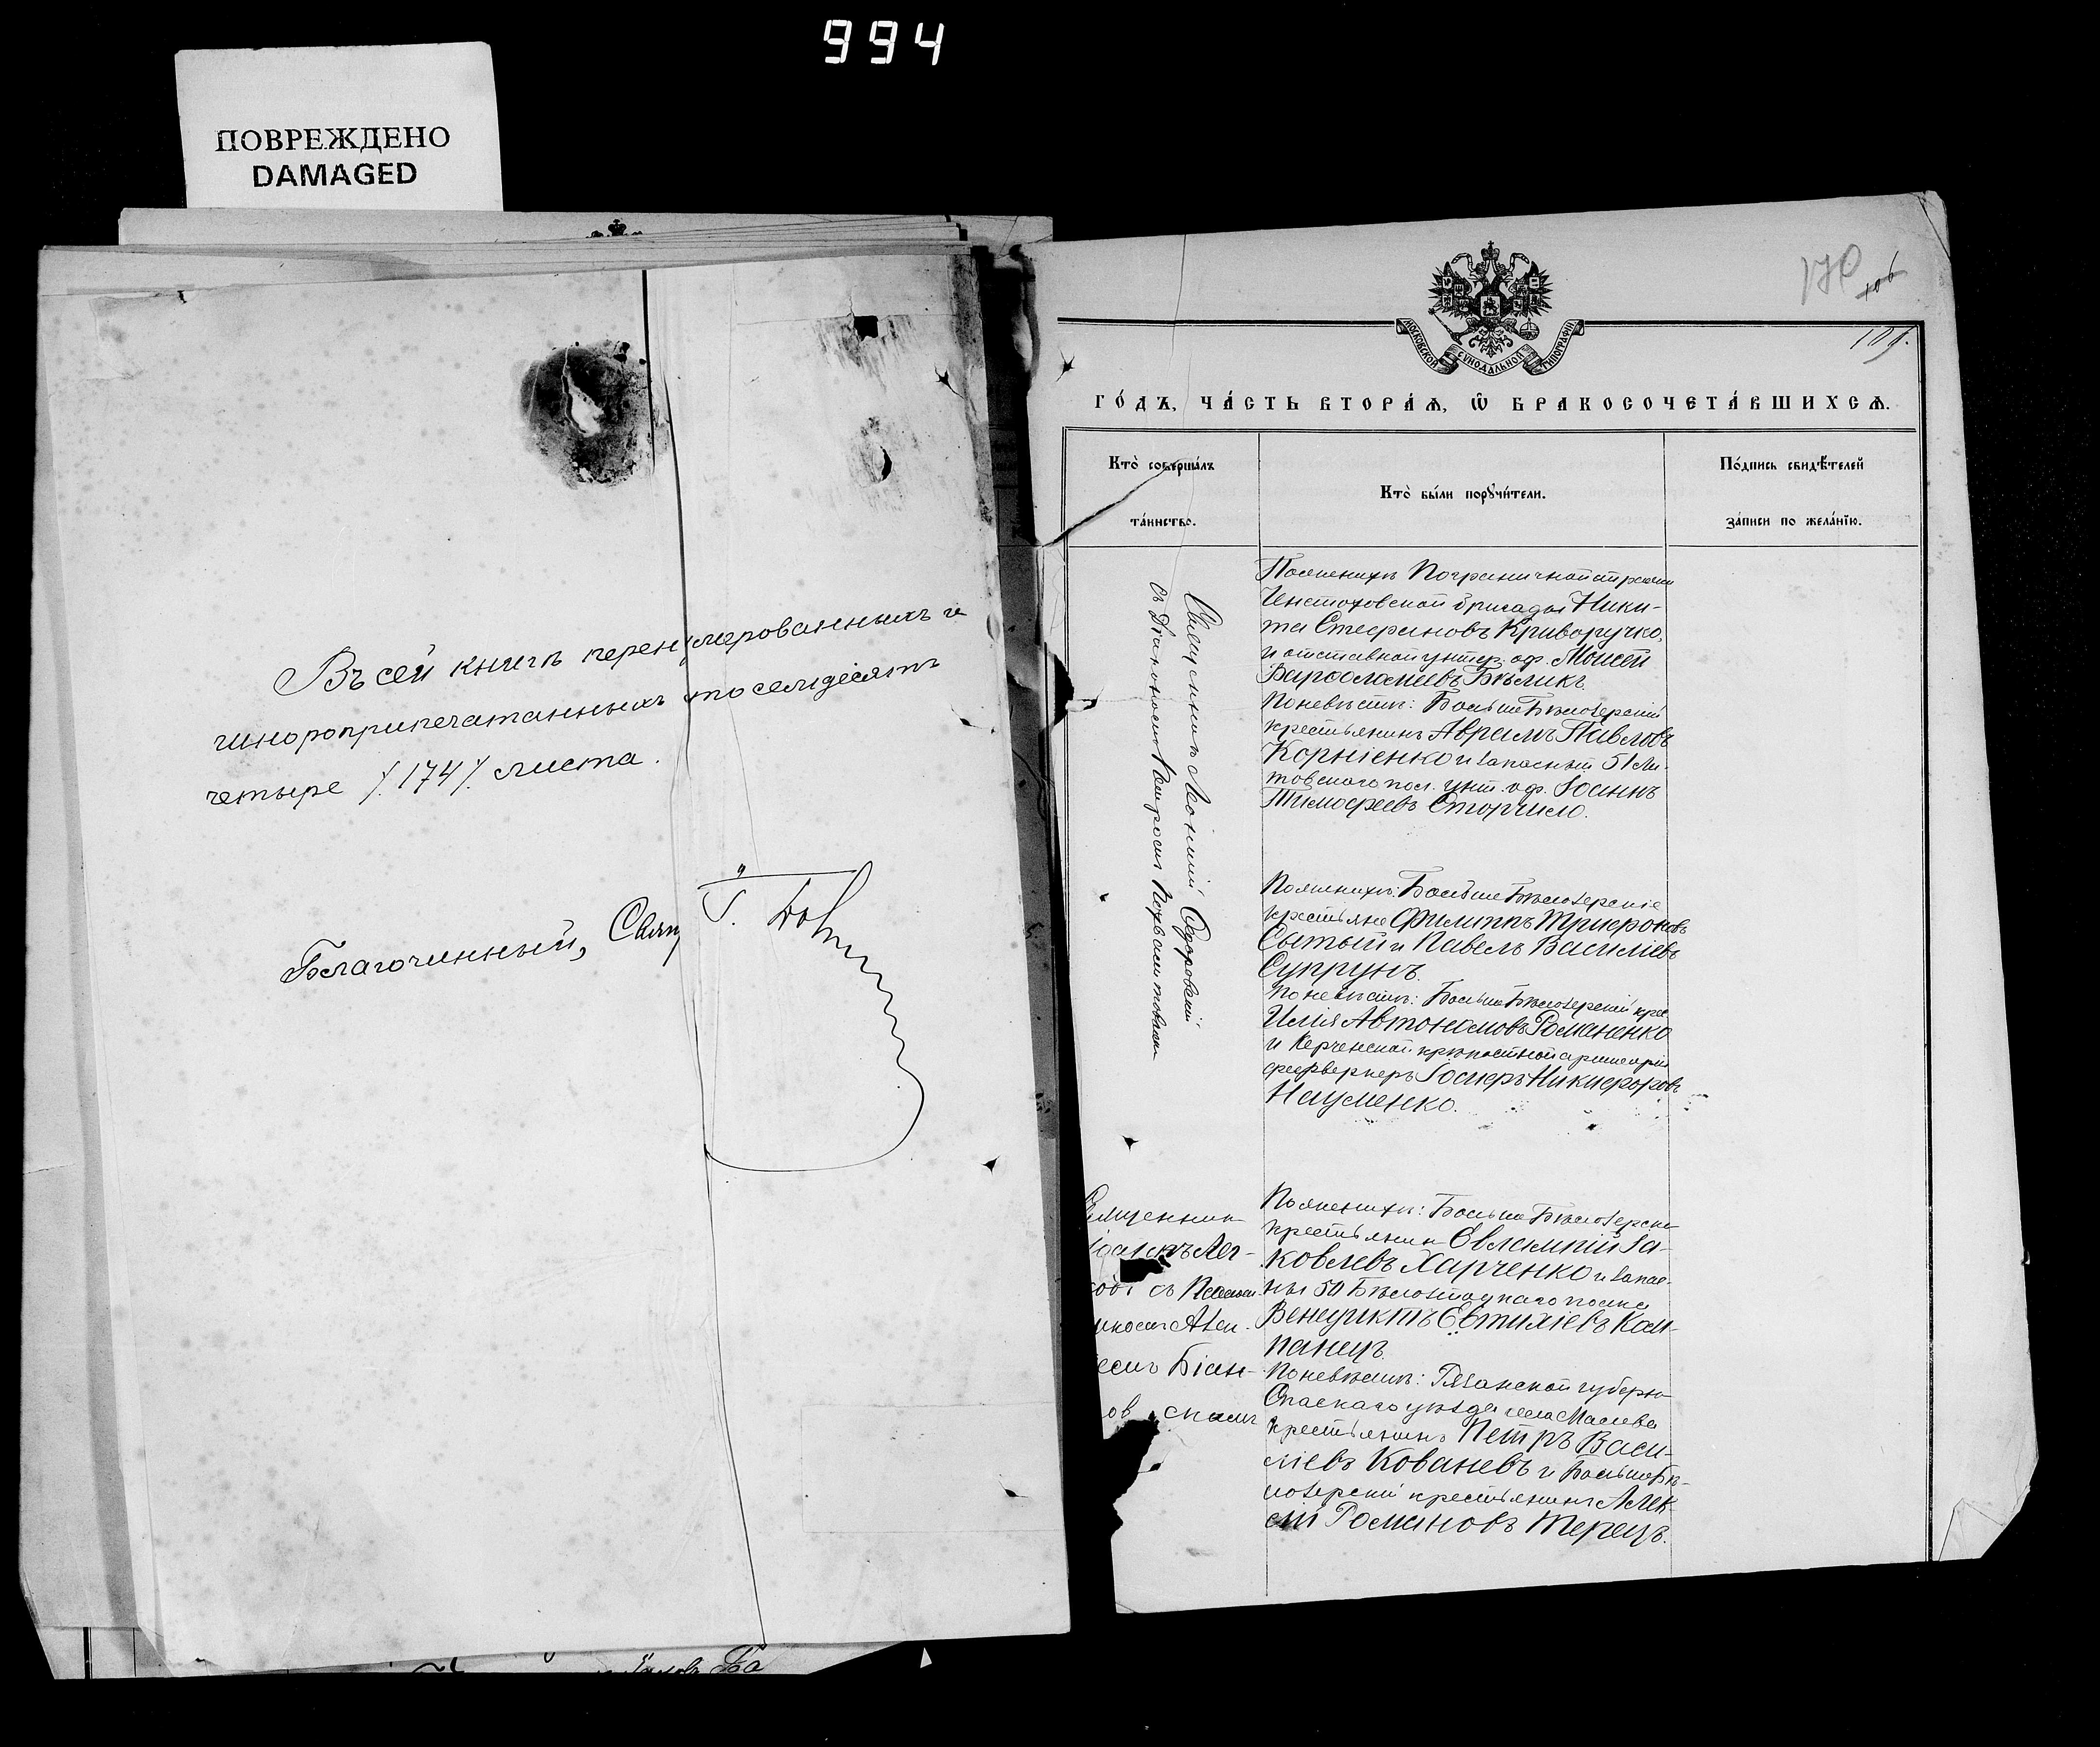 994
ПОВРЕЖДЕНО
DAMAGED
Въ сей книгѣ перенумерованныхъ и
шнуроприпечатанныхъ сто семдесятъ
четыре /.174/. листа.
Благочинный, Свящ
170
106
109.
МОСКОВСКОЙ СѴНОДАЛЬНОЙ ТИПОГРАФІИ
ГО́ДЪ, ЧА́СТЬ ВТОРА́Ѧ, Ѽ БРАКОСОЧЕТА́ВШИХСѦ.
Кто̀ соверша́лъ
та́инство.
Кто̀ бы́ли порꙋчи́тели.
По́дпись свидѣ́телей
за́писи по жела́нїю.
Священникъ Леонтій
съ Діакономъ
По женихѣ Пограничной стражи
Ченстоховской бригады Ники-
та Стефановъ Криворучко,
и отставной унтер. оф. Моисей
Варфоломеевъ Бѣликъ.
По невѣстѣ: Больше Бѣлозерскій
крестьянинъ Аврамъ Павловъ
Корніенко и запасный 51 Ли-
товского пол. унт. оф. Іоаннъ
Тимофеевъ Сторчило.
По женихѣ: Больше Бѣлозерскіе
крестьяне Филиппъ Трифоновъ
Сытый и Павелъ Василіевъ
Супрунъ.
По невѣстѣ: Больше Бѣлозерскій крес
Илія Автономовъ Романенко
и Керченской крѣпостной артилеріи
фейрверкеръ Іосифъ Никифоровъ
Науменко.
Священник
съ Псалом
По женихѣ: Больше Бѣлозерски
крестьянин Евлампій Іа-
ковлевъ Харченко и запас-
ны 50 Бѣлостоцкаго полка
Венедиктъ Евтихіевъ Ком-
панецъ.
По невѣстѣ: Рязанской губерн
Спаскаго уѣзда села
крестьянинъ Петръ Васи-
ліевъ Ковалевъ и Больше Бѣ-
лозерскій крестьянинъ Алек-
сій Романовъ Терецъ.